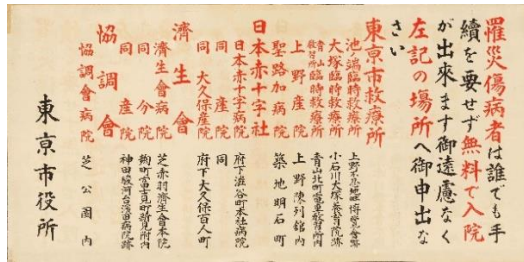 罹災傷病者は誰でも手
續を要せず無料で入院
が出來ます御遠慮なく
左記の場所へ御申出な
さい
東京市救療所
池ノ端臨時救療所 上野不忍池畔博覧會跡
大塚臨時救療所 小石川大塚養育院跡
青山臨時救療所 青山北町電車教習所内
上野産院 上野陳列館内
聖路加病院 築地明石町
日本赤十字社
日本赤十字病院 府下澁谷町本社病院
同 産院 同
同 大久保産院 府下大久保百人町
濟生會
濟生會病院 芝赤羽濟生會本院
同 分院 麹町富士見町
同 産院 神田駿河台
協調會
協調會病院 芝公園内
東京市役所